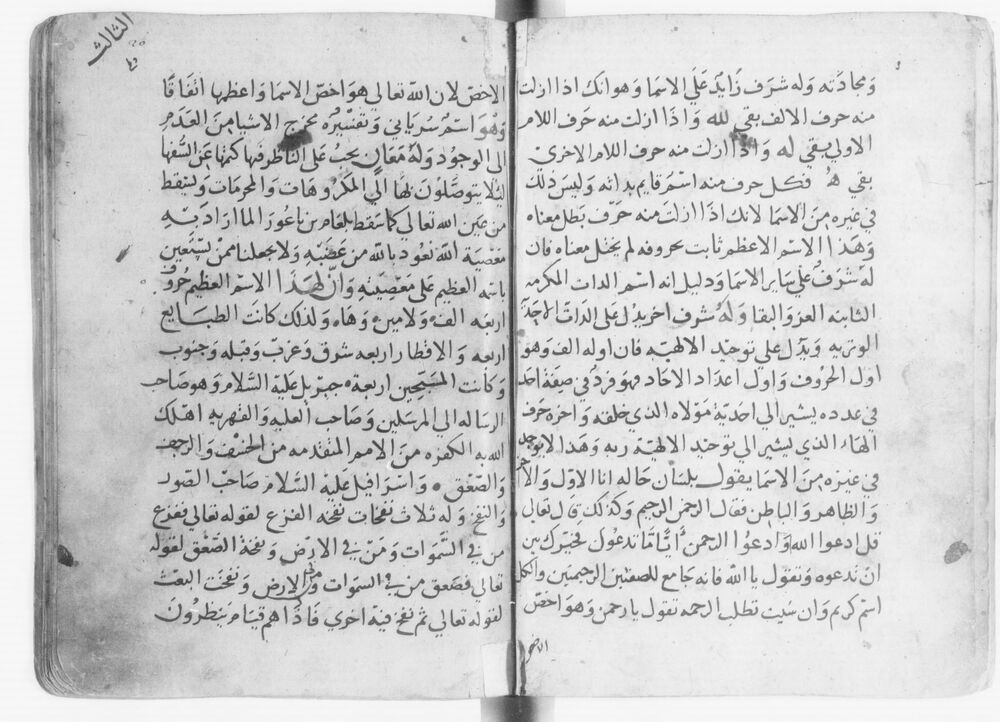 ومحادثه وله شرف زايد على الاسما وهو انك اذا ازلت
منه حرف الالف بقي لله واذا ازلت منه حرف اللام
الاولي بقي له واذا ازلت منه حرف اللام الاخرى
بقي هُ فكل حرف منه اسم قايم بداته وليس دلك
في غيره من الاسما لانك اذا ازلت منه حرف بطل معناه
وهذا الاسم الاعظم ثابت بحروفه لم يختل معناه فان
له شرف على ساير الاسما ودليل انه اسم الدات المكرمه
الثابته العز والبقا وله شرف اخر يدل على الدات الاحد
الوتريه ويدل علي توحيد الالهيه فان اوله الف وهو
اول الحروف واول اعداد الاحاد فهو فرد في صفة احد
في عدده يشير الي احدية مولاه الذي خلقه واخره حرف
الهاء الذي يشير الي توحيد الالهية ربه وهدا لا يوجد
في غيره من الاسما يقول بلسان حاله انا الاول والاخر
والظاهر والباطن فقال الرحمن الرحيم وكذلك قال تعالى
قل ادعوا الله او ادعوا الرحمن أيًّا مّا تدعوا فخيرك بين
ان تدعوه وتقول يا الله فانه جامع للصفتين الرحيمتين والكل
اسم كريم وان شيت تطلب الرحمه تقول يا رحمن وهو اخص
الاخص
الثالث
الاخص لان الله تعالي هو اخص الاسما واعظمها اتفاقًا
وهو اسم سرياني وتفسيره يخرج الاشيا من العدم
الى الوجود وله معان يجب على الناظر فيها كتمها عن السفها
ليلا يتوصلون بها الي المكروهات والمحرمات وليسقط
من عين الله تعالي كما سقط بلعام بن باعورا لما اراد به
معصية الله نعود بالله من غضبه ولا جعلنا ممن يستعين
باسمه العظيم على معصيته وان لهذا الاسم العظيم حروف
اربعه الف ولامين وهاء ولدلك كانت الطبايع
اربعه والاقطار اربعه شرق وغرب وقبله وجنوب
وكانت المسبحين اربعة جبريل عليه السلام وهو صاحب
الرساله الي المرسلين وصاحب العليه والقهريه اهلك
الله به الكفره من الامم المتقدمه من الخسف والرجف
والصعق واسرافيل عليه السلام صاحب الصور
والنفخ وله ثلاث نفخات نفخه الفزع لقوله تعالي ففزع
من في السموات ومن في الارض ونفخة الصعق لقوله
تعالي فصعق من في السموات ومن في الارض ونفخت البعث
لقوله تعالي ثم نفخ فيه اخري فاذا هم قيام ينظرون